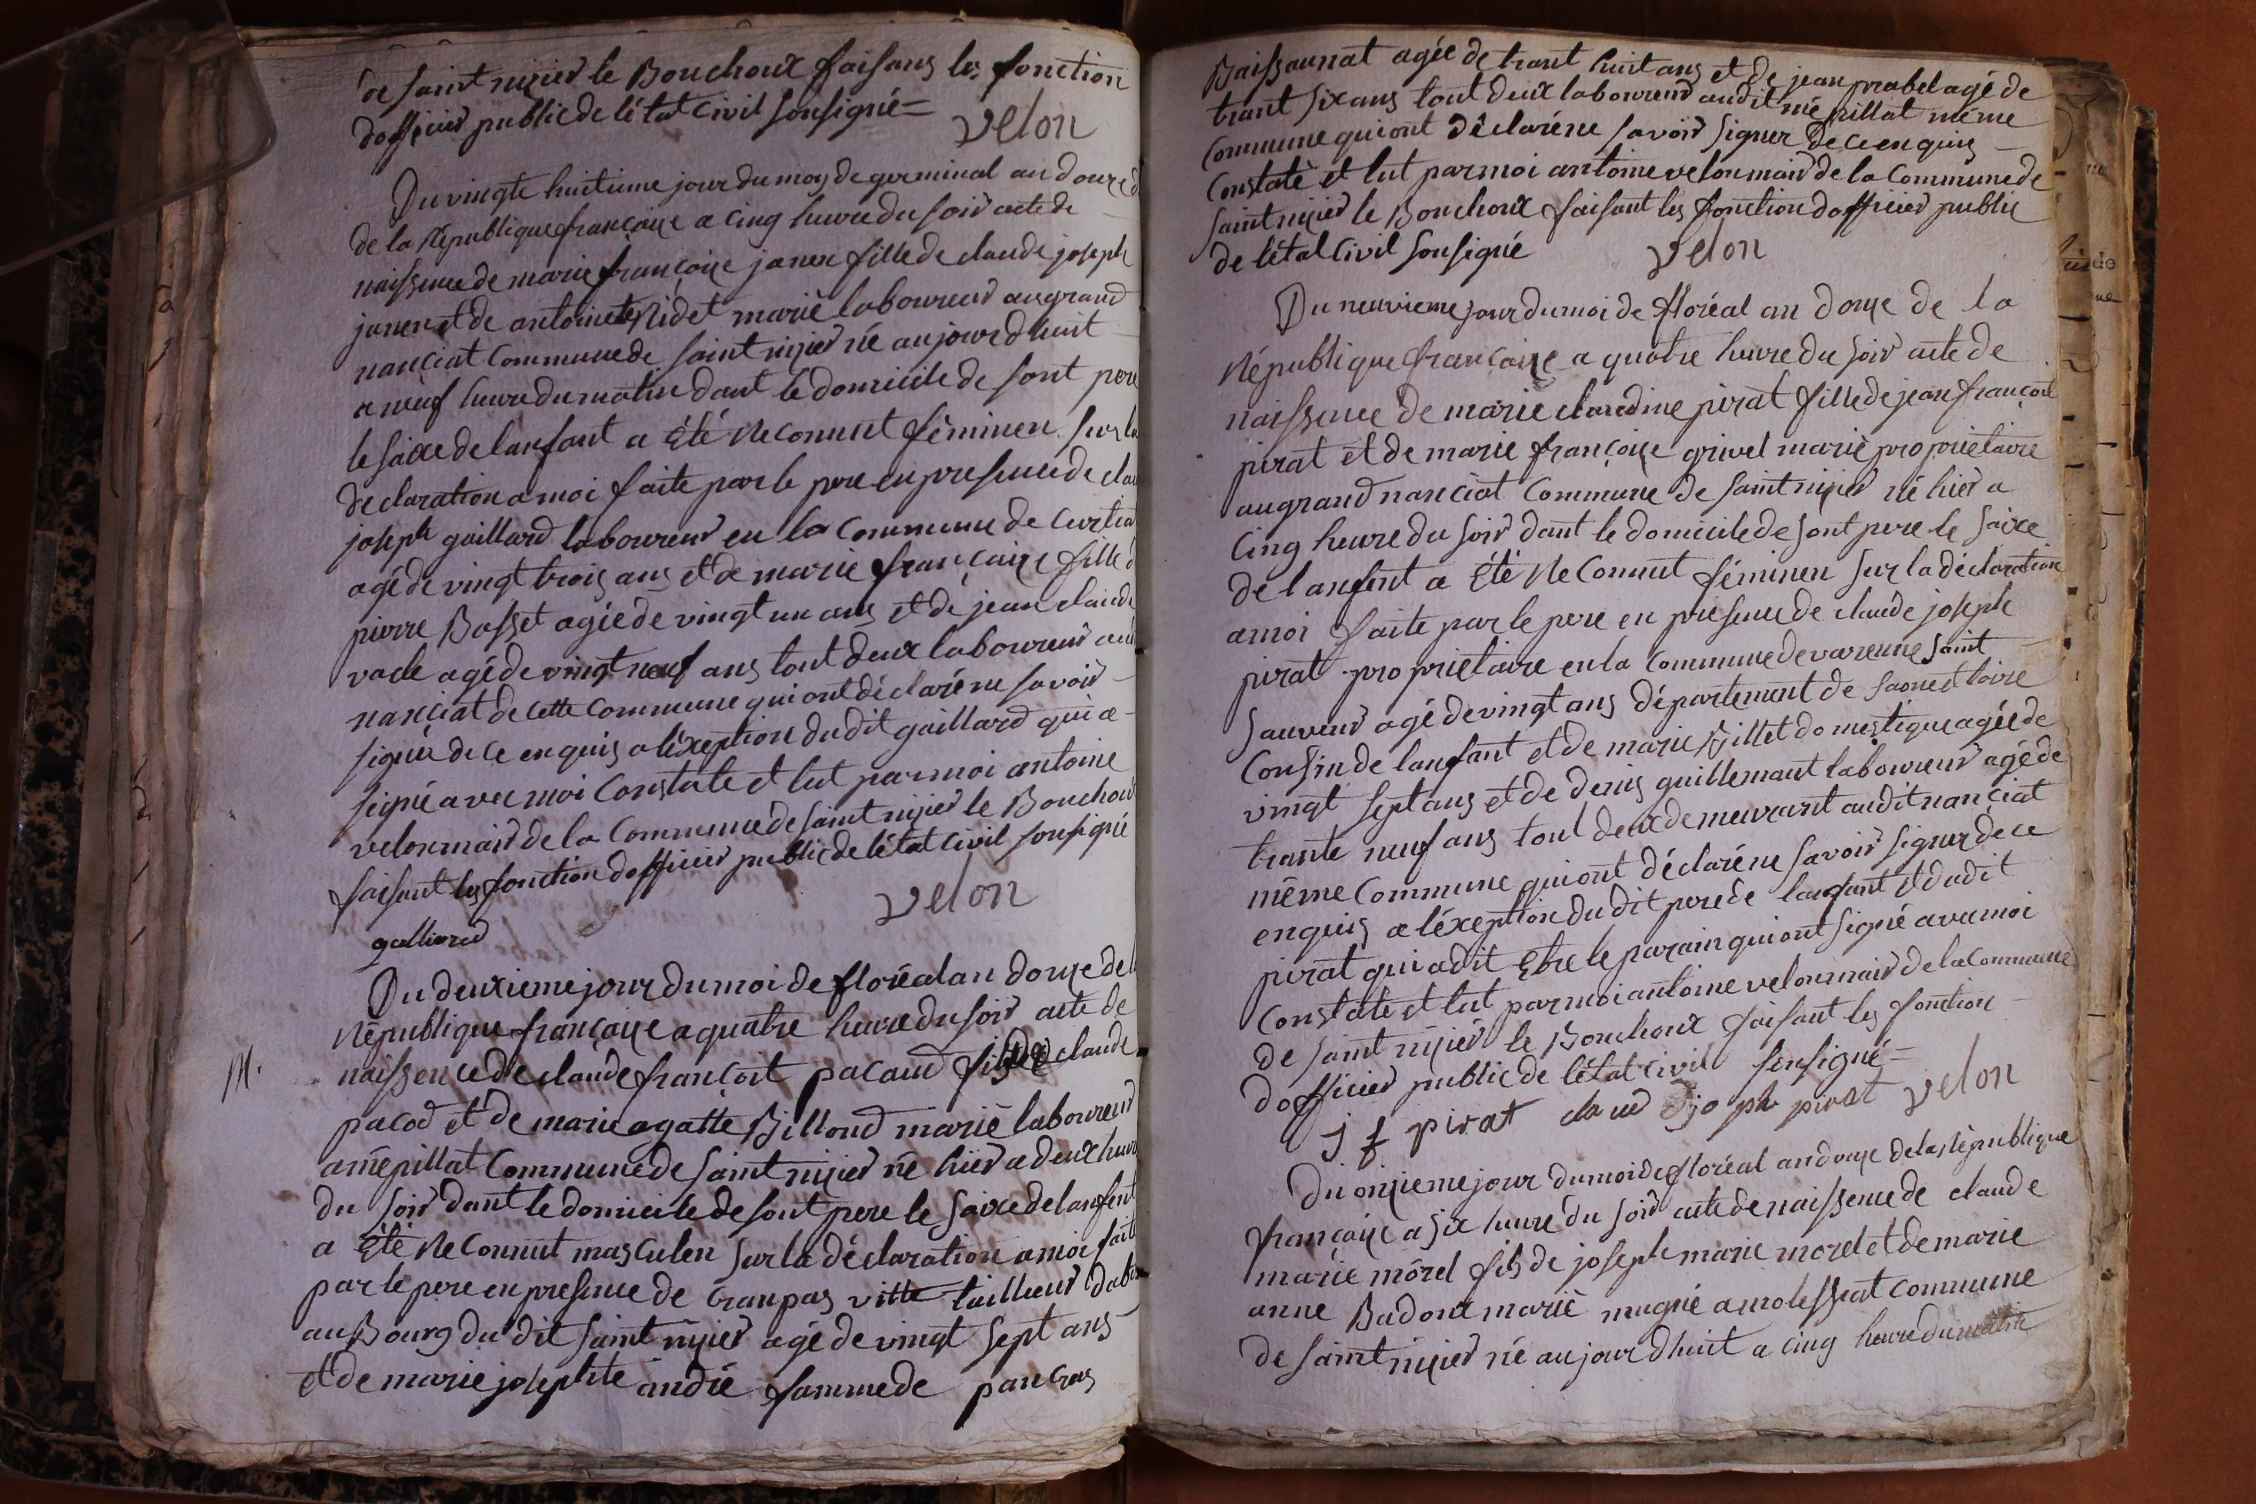 de saint nizier le Bouchoux faisans les fonction
dofficier public de létat civil sousigné =
velon
Du vingte huitieme jour du moy de germinal an douze d
de la République françoize a cinq heure du soir acte de
naissence de marie françoize janen fille de claude joseph
janen et de antoinete Nidet marié laboureur au grand
nanciat commune de saint nizier né aujourdhuit
a neuf heure du matin dant le domicile de sont pere
le saixe de lanfant a été Reconnut féminen sur la
declaration a moi faite par le pere en presence de clau
joseph gaillard laboureur en la commune de curtiat
agé de vingt trois ans et de marie françaize fille d
pierre Basset agée de vingt un ans et de jean claude
vacle agé de vingt neuf ans tout deux laboureur au
nanciat de cette commune qui ont déclaré ne savoir
signé de ce enquis a léxeption du dit gaillard qui a
signé avec moi Constate et lut par moi antoine
velon mair de la Commune de saint nizier le Bouchoux
faisant les fonction dofficier public de létat civil sousigné
velon
galliard
Du deuxieme jour du moi de floréal an douze de l
République françoize a quatre heure du soir acte de
M.
naissence de claude françoit pacaud fils de claude
pacod et de marie agatte Billoud marié laboureur
a mépillat Commune de saint nizier né hier a deux heure
du soir dant le domicile de sont pere le saixe de lanfent
a été Reconnut masculen sur la déclaration a moi fait
par le pere en presence de Cranpas vitte tailleur dab
au Bourg du dit saint nizier agé de vingt sept ans
et de marie josephte andré famme de pancras
Baissaunat agée de trant huit ans et de jean prabel agé de
trant six ans tout deux laboureur audit mépillat méme
Commune qui ont déclaré ne savoir signer de ce enquis
Constaté et lut par moi antoine velon mair de la Commune de
saint nizier le Bouchoux faisant les fonction dofficier public
de létat civil sousigné
velon
Du neuvieme jour du moi de floréal an douze de la
République françoize a quatre heure du soir acte de
naissence de marie claudine pirat fille de jean françoit
pirat et de marie françoize grivel marié propriétaire
au grand nanciat Commune de saint nizier né hier a
cinq heure du soir dant le domicile de sont pere le saixe
de lanfent a été Reconnut féminen sur la déclaration
a moi faite par le pere en presence de claude joseph
pirat propriétaire en la Commune de varenne saint
sauveur agé de vingt ans département de saone et loire
Cousin de lanfant et de marie Billet domestique agée de
vingt sept ans et de denis guillemaut laboureur agé de
trante neuf ans tout deux demeurant audit nanciat
même Commune qui ont déclaré ne savoir signer de ce
enquis a léxeption du dit pere de lanfant et dudit
pirat qui a dit être le parain qui ont signé avec moi
Constaté et lut par moi antoine velon mair de la Commune
de saint nizier le Bouchoux faisant les fonction
dofficier public de létat civil sousigné =
j f pirat claud jo ph pirat velon
Du onzieme jour du moi de floréal an douze de la République
françoize a six heure du soir acte de naissence de claude
marie morel fils de joseph marie morel et de marie
anne Badoux marié mugnié a molessiat commune
de saint nizier né aujourdhuit a cinq heure du matin